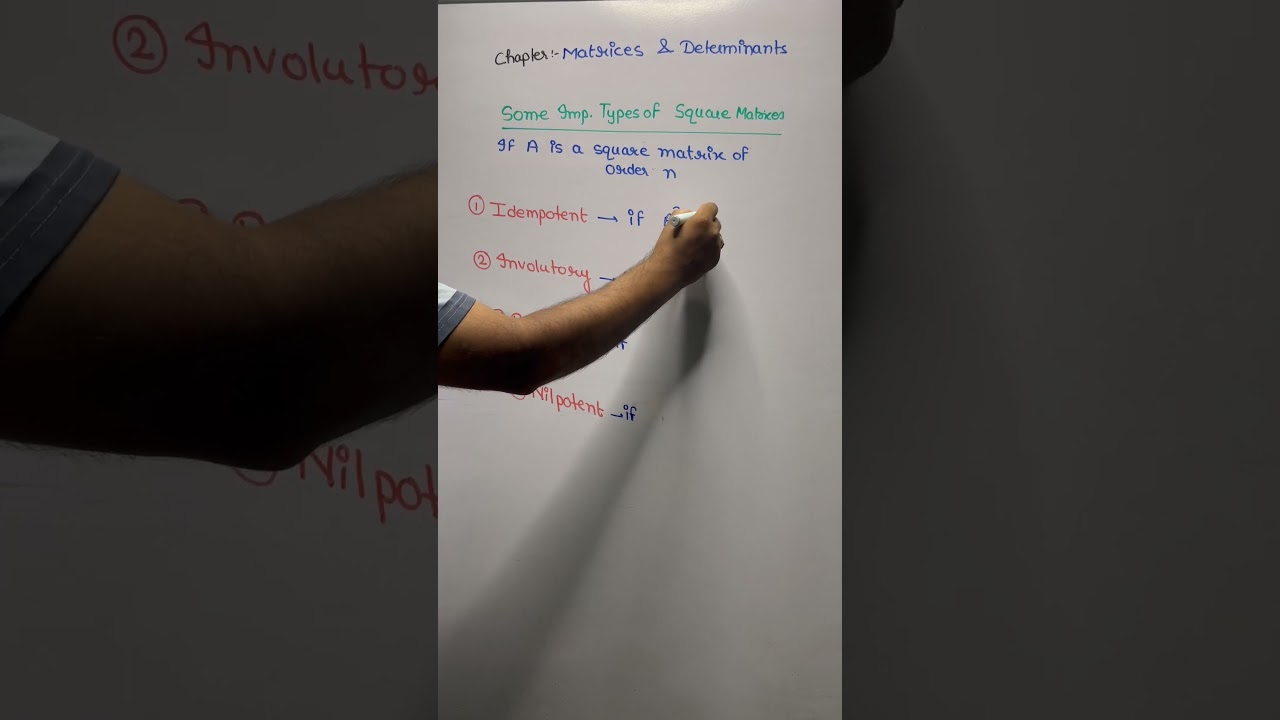 Chapter:- Matrices & Determinants
Some Imp. Types of Square Matrices
If A is a square matrix of
order n
① Idempotent → if
② Involutory →
if
Nilpotent → if
② Involutory
Nilpot